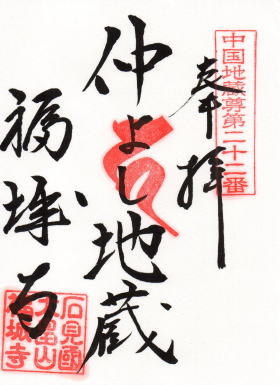 中国地蔵尊第二十二番
奉拝
仲よし地蔵
福城寺
石見國
大瀧山
福城寺